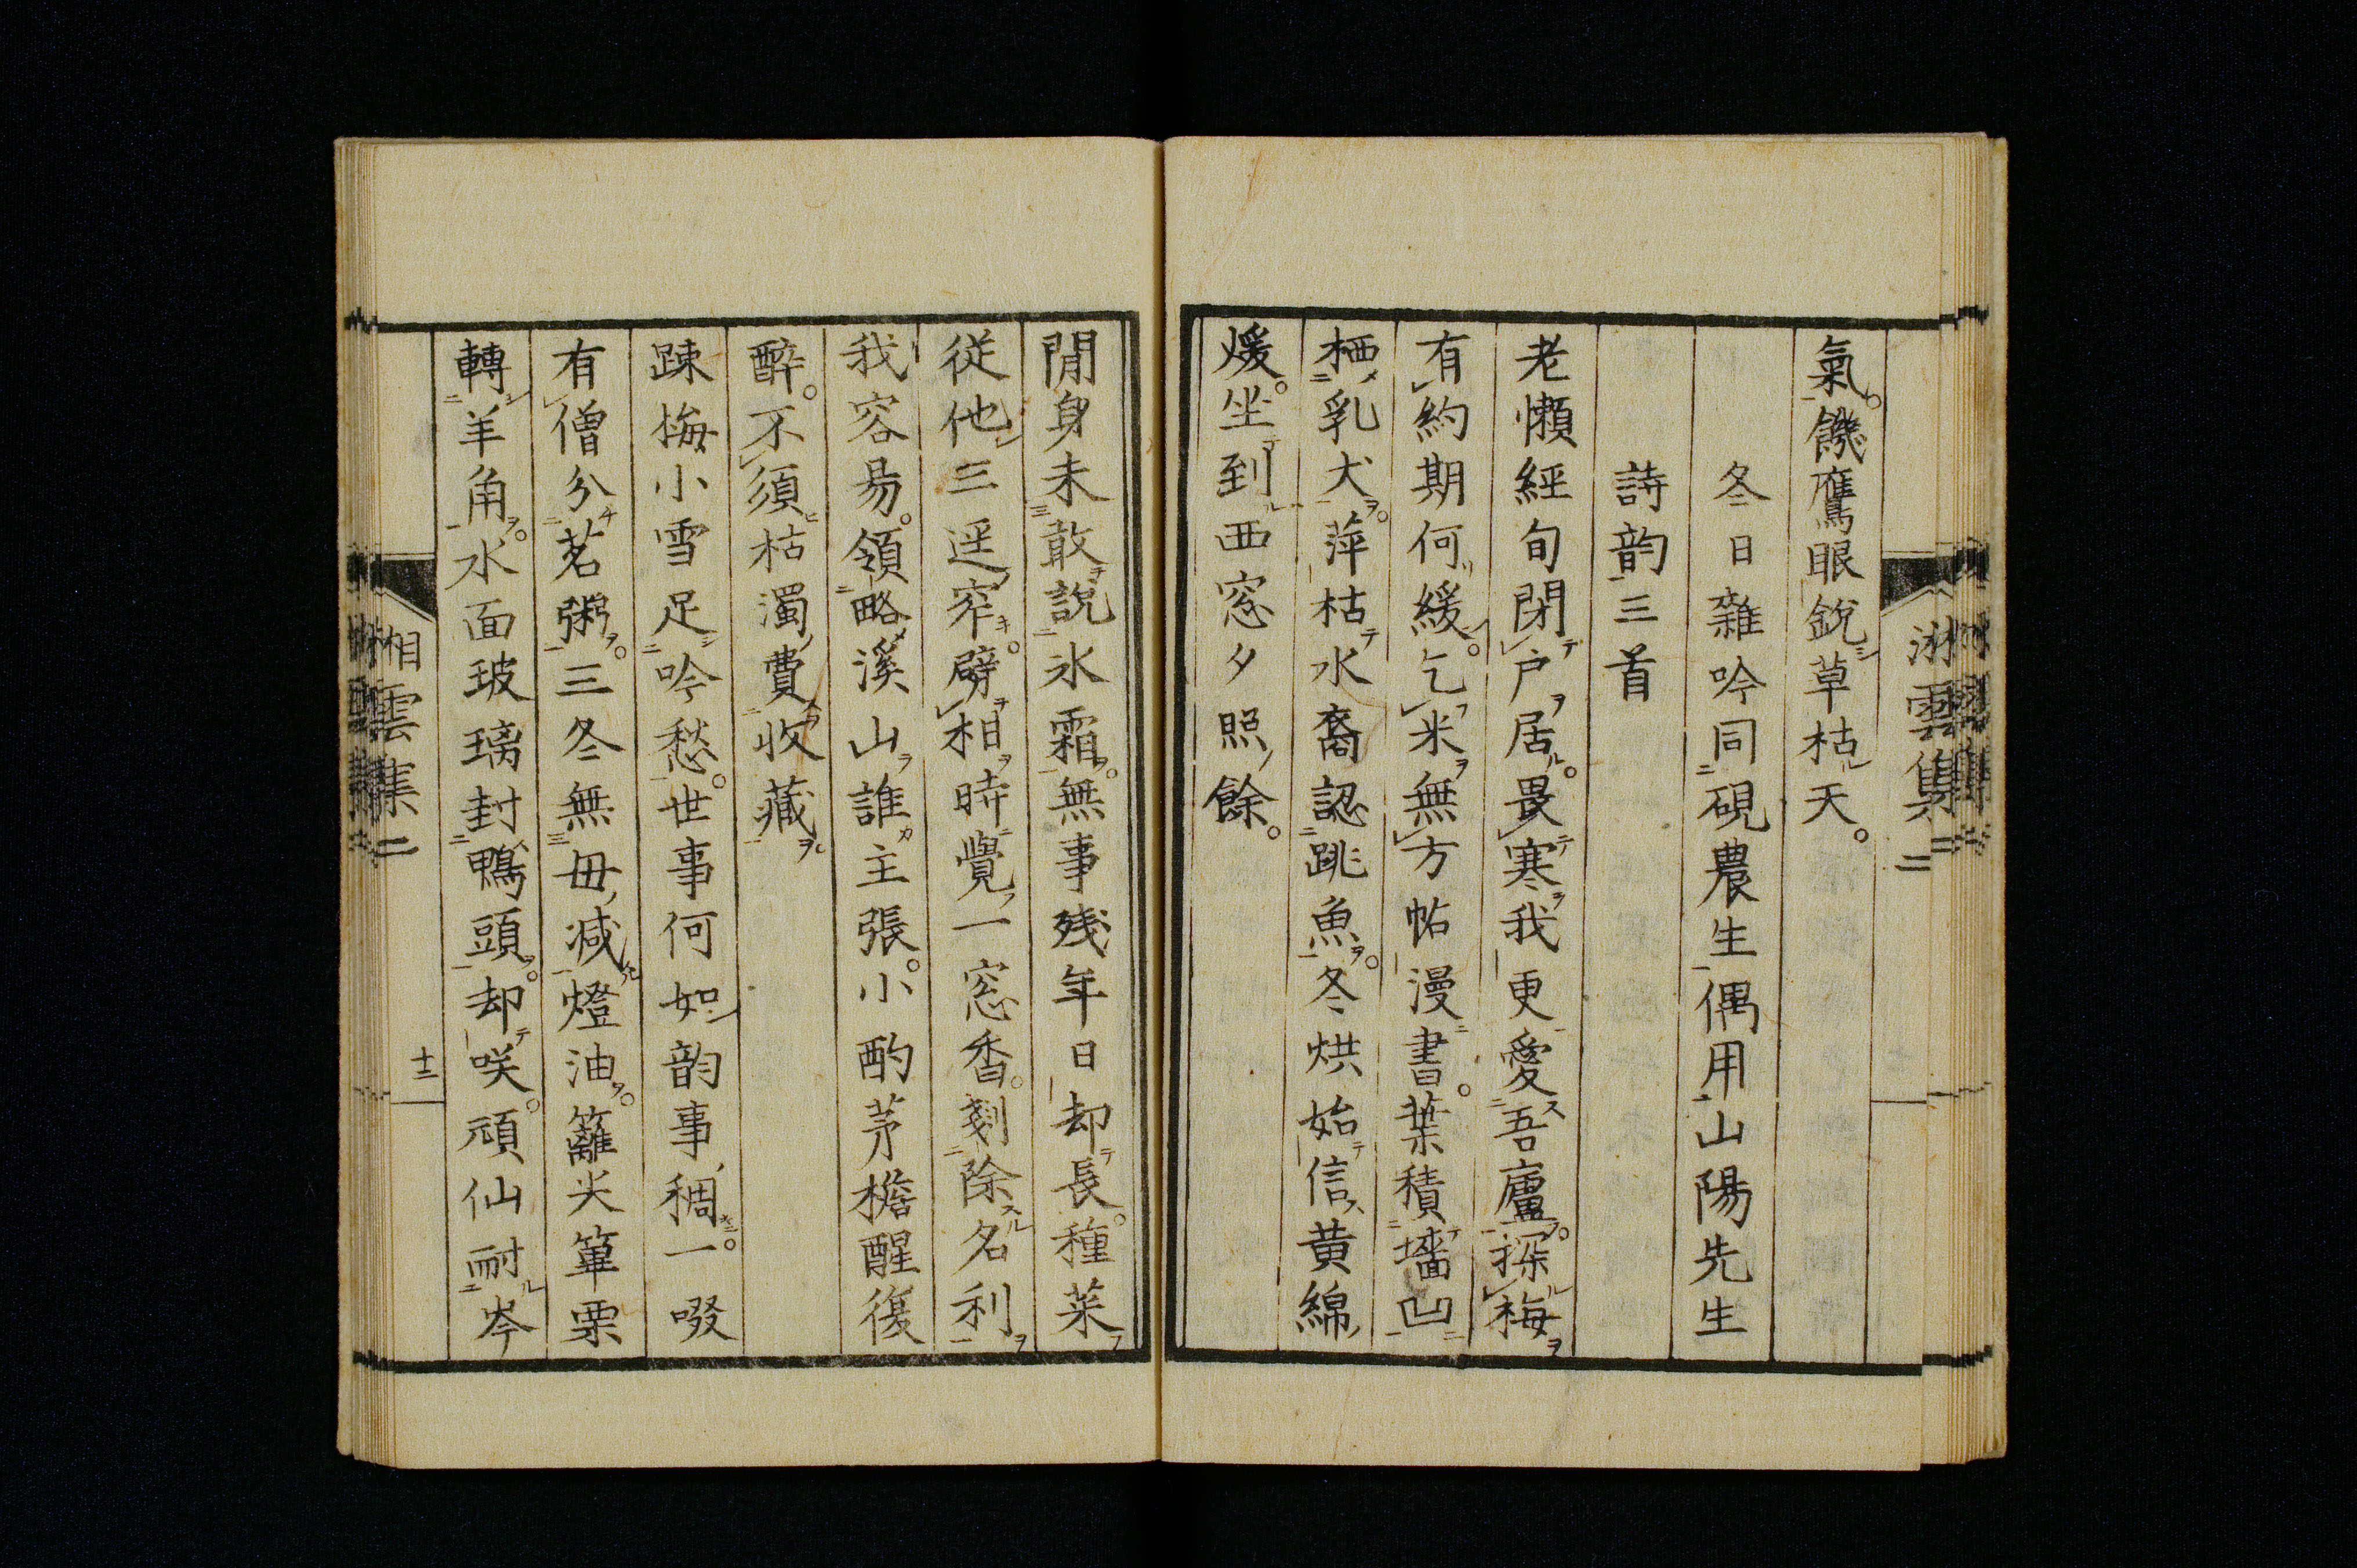 氣。饑鷹眼銳草枯天。
冬日雜吟同硯農生偶用山陽先生
詩韵三首
老懶經旬閉戸居。畏寒我更愛吾廬。探梅
有約期何緩。乞米無方帖漫書。葉積墻凹
栖乳犬。萍枯水裔認跳魚。冬烘始信黄綿
煖。坐到西窓夕照餘。
湘雲集 二
閒身未敢說氷霜。無事殘年日却長。種菜
従他三逕窄。劈柑時覺一窓香。剗除名利
我容易。領略溪山誰主張。小酌茅檐醒復
醉。不須枯濁費收藏。
踈梅小雪足吟愁。世事何如韵事稠。一啜
有僧分茗粥。三冬無毋减燈油。籬尖篳栗
轉羊角。水面玻璃封鴨頭。却咲頑仙耐岑
湘雲集 二
十二